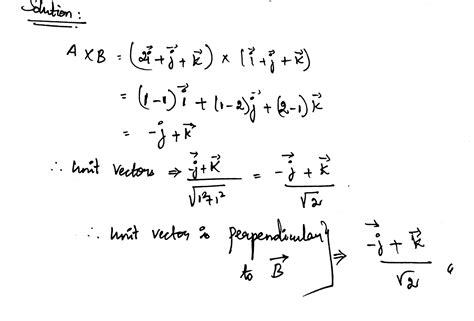 Solution :
A × B = (2i⃗ + j⃗ + k⃗) × (i⃗ + j⃗ + k⃗)
= (1-1) i⃗ + (1-2) j⃗ + (2-1) k⃗
= -j⃗ + k⃗
∴ Unit vectors ⇒ -j⃗ + k⃗ / √1²+1² = -j⃗ + k⃗ / √2 .
∴ Unit vector is perpendicular to B⃗ } ⇒ -j⃗ + k⃗ / √2